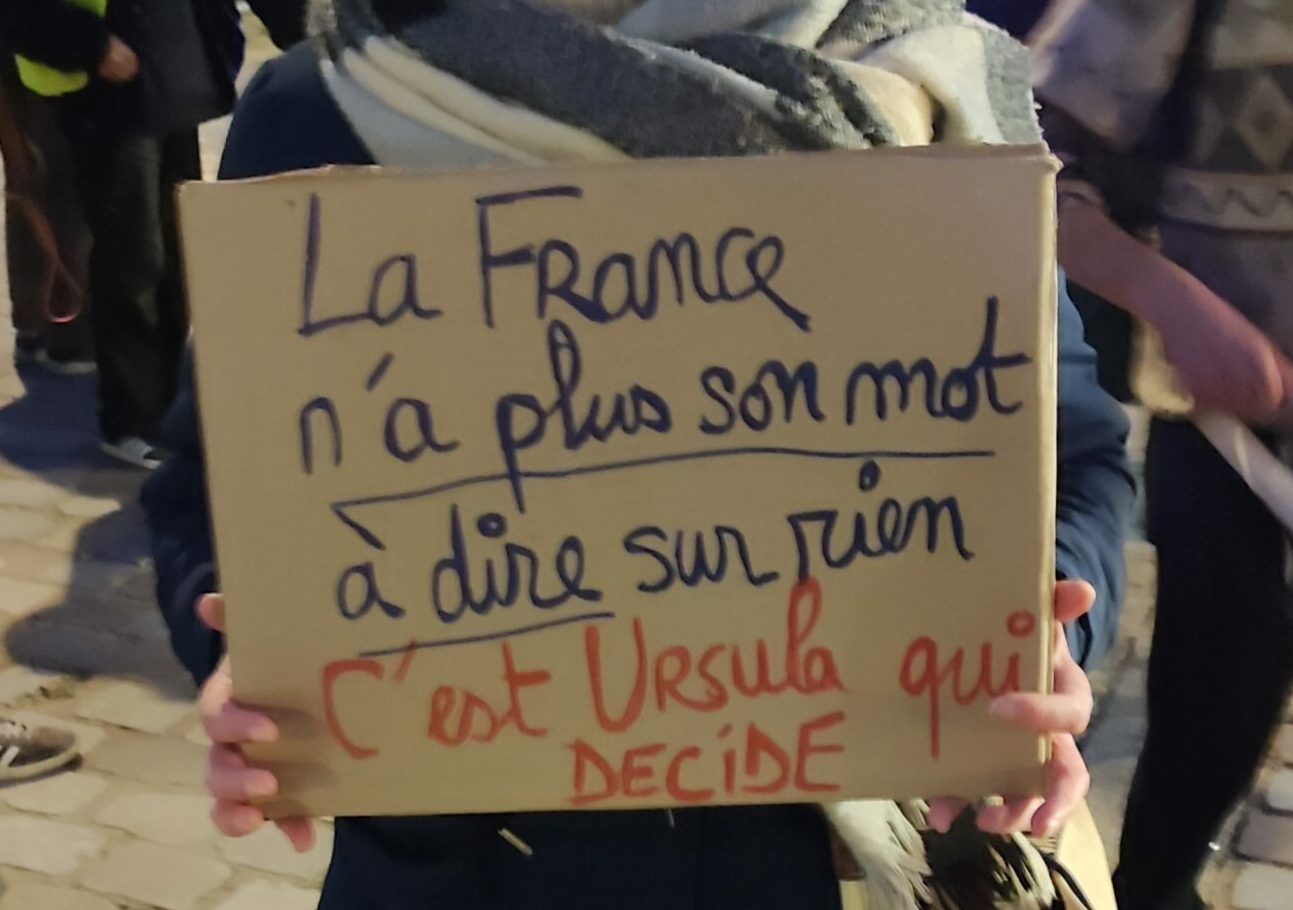 La France
n'a plus son mot
à dire sur rien
C'est Ursula qui
DECiDE